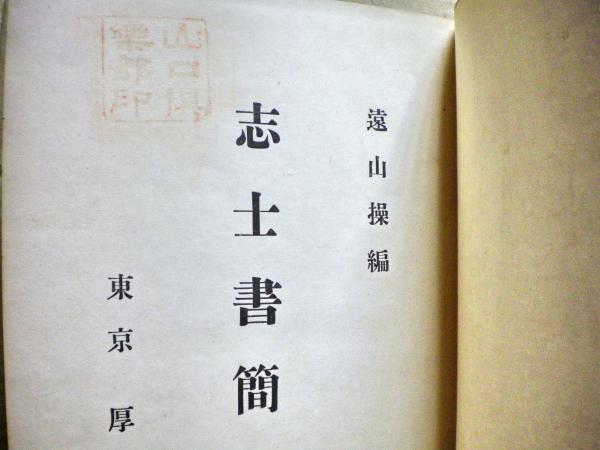 遠山操編
志士書簡
東京 厚
山口倶
樂部印